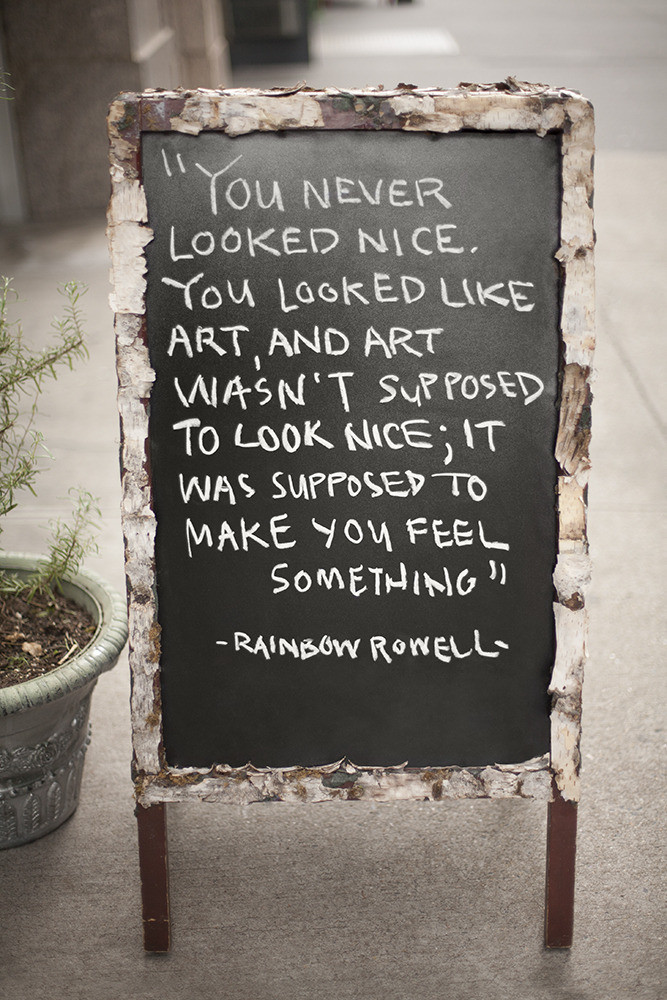 "YOU NEVER
LOOKED NICE.
YOU LOOKED LIKE
ART, AND ART
WASN'T SUPPOSED
TO LOOK NICE; IT
WAS SUPPOSED TO
MAKE YOU FEEL
SOMETHING"
-RAINBOW ROWELL-